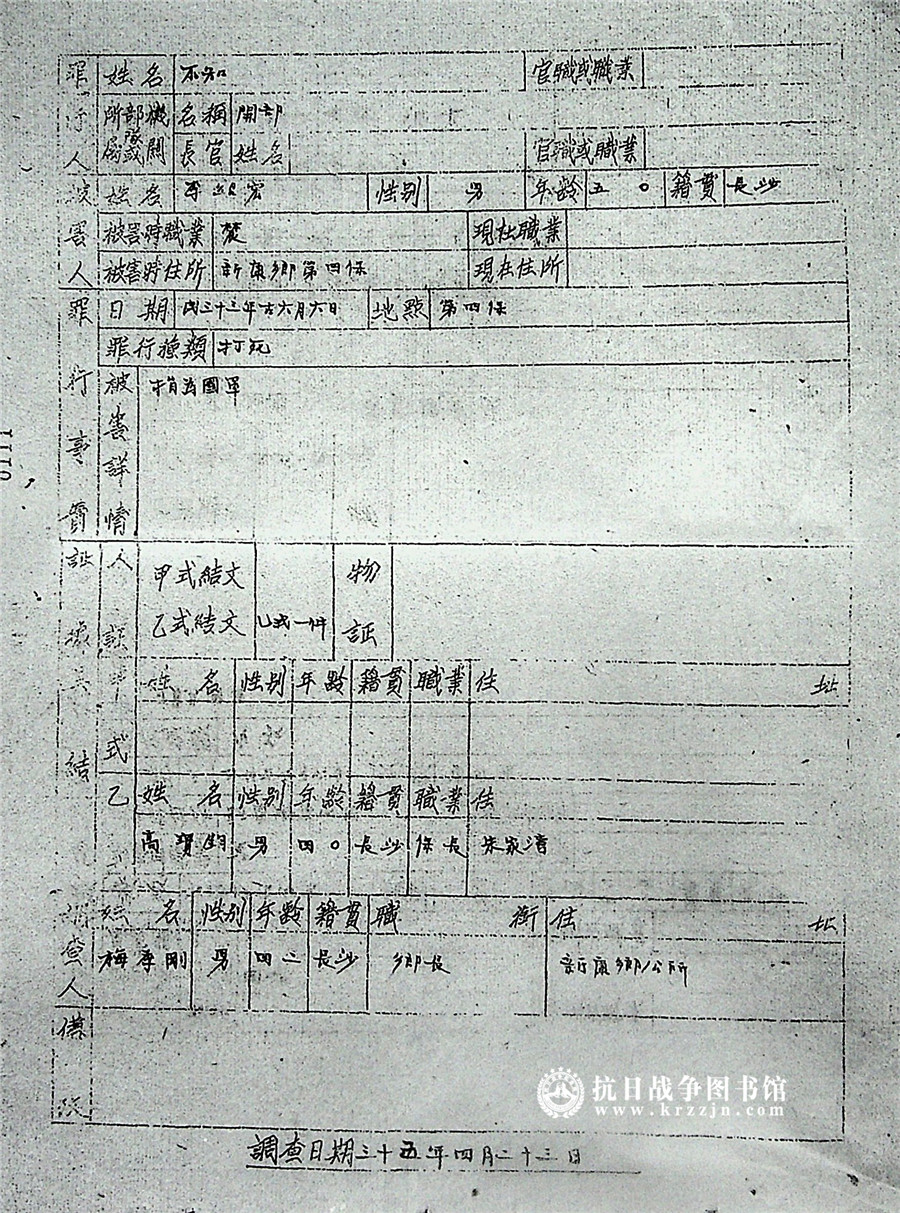 罪行人 姓名 不知 官職或職業
所屬部隊或機關 名稱 開部
長官 姓名 官職或職業
被害人 姓名 宏 性别 男 年齡 五〇 籍貫 長沙
被害時職業 農 現在職業
被害時住所 新康鄉第四保 現在住所
罪行事實 日期 民三十三年古六月六日 地點 第四保
罪行種類 打死
被害詳情 指為國軍
証據具結 人証 甲式結文 物証
乙式結文 乙式一件
甲式 姓名 性别 年齡 籍貫 職業 住址
乙 姓名 性别 年齡 籍貫 職業 住
高 男 四〇 長沙 保長 朱家
調查人 姓名 性别 年齡 籍貫 職銜 住址
梅 剛 男 四二 長沙 鄉長 新康鄉公所
備考
調查日期三十五年四月二十三日
0111
抗日战争图书馆
www.krzzjn.com